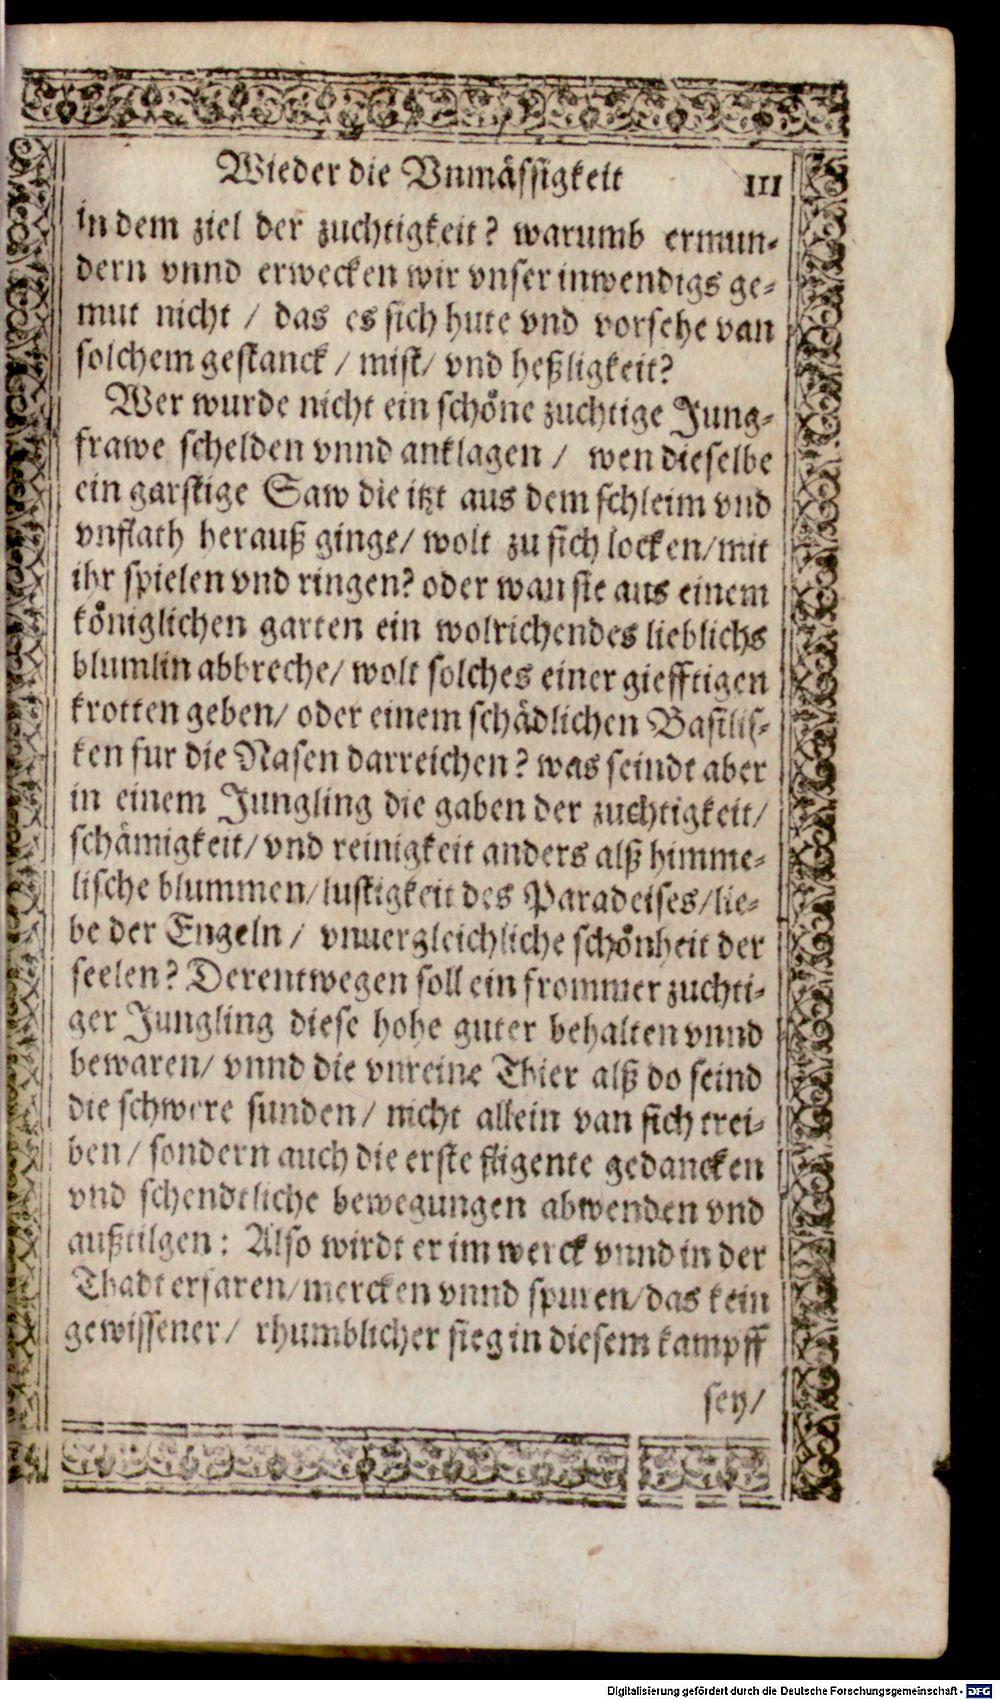 Wieder die Vnmässigkeit 111
in dem ziel der zuchtigkeit? warumb ermun-
dern vnnd erwecken wir vnser inwendigs ge-
mut nicht / das es sich hute vnd vorsehe van
solchem gestanck / mist/ vnd heßligkeit?
Wer wurde nicht ein schöne zuchtige Jung-
frawe schelden vnnd anklagen / wen dieselbe
ein garstige Saw die itzt aus dem schleim vnd
vnflath herauß ginge/ wolt zu sich locken/mit
ihr spielen vnd ringen? oder wan sie aus einem
königlichen garten ein wolrichendes lieblichs
blumlin abbreche/ wolt solches einer giefftigen
krotten geben/ oder einem schädlichen Basilis-
ken fur die Nasen darreichen? was seindt aber
in einem Jungling die gaben der zuchtigkeit/
schämigkeit/ vnd reinigkeit anders alß himme-
lische blummen/lustigkeit des Paradeises/lie-
be der Engeln / vnuergleichliche schönheit der
seelen? Derentwegen soll ein frommer zuchti-
ger Jungling diese hohe guter behalten vnnd
bewaren/ vnnd die vnreine Thier alß do seind
die schwere sunden/ nicht allein van sich trei-
ben / sondern auch die erste fligente gedancken
vnd schendtliche bewegungen abwenden vnd
außtilgen: Also wirdt er im werck vnnd in der
Thadt erfaren/mercken vnnd spuren/das kein
gewissener/ rhumblicher sieg in diesem kampff
sey/
Digitalisierung gefördert durch die Deutsche Forschungsgemeinschaft - DFG